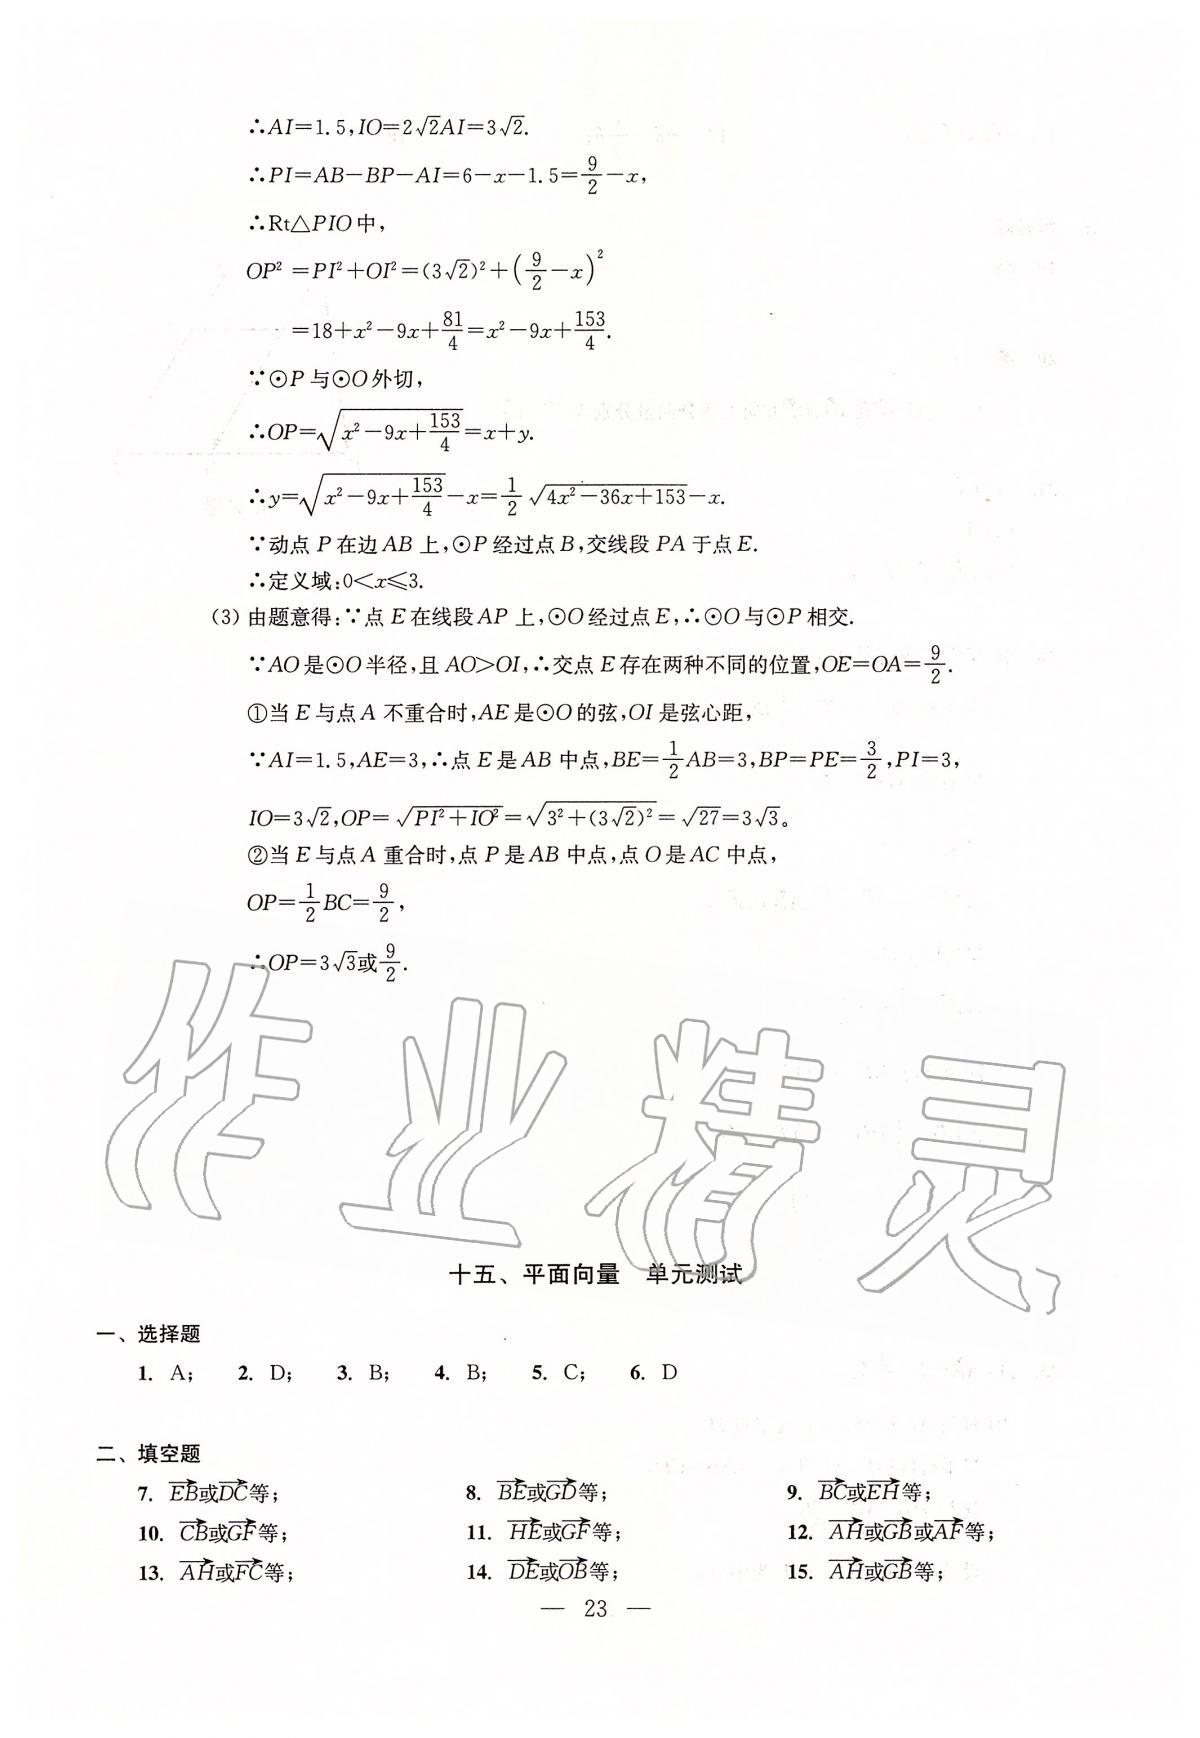 ∴AI=1.5,IO=2√2AI=3√2.
∴PI=AB-BP-AI=6-x-1.5=9/2-x,
∴Rt△PIO中,
OP²=PI²+OI²=(3√2)²+(9/2-x)²
=18+x²-9x+81/4=x²-9x+153/4.
∵⊙P与⊙O外切,
∴OP=√(x²-9x+153/4)=x+y.
∴y=√(x²-9x+153/4)-x=1/2√(4x²-36x+153)-x.
∵动点P在边AB上,⊙P经过点B,交线段PA于点E.
∴定义域:0<x≤3.
(3) 由题意得:∵点E在线段AP上,⊙O经过点E,∴⊙O与⊙P相交.
∵AO是⊙O半径,且AO>OI,∴交点E存在两种不同的位置,OE=OA=9/2.
①当E与点A不重合时,AE是⊙O的弦,OI是弦心距,
∵AI=1.5,AE=3,∴点E是AB中点,BE=1/2AB=3,BP=PE=3/2,PI=3,
IO=3√2,OP=√(PI²+IO²)=√(3²+(3√2)²)=√27=3√3。
②当E与点A重合时,点P是AB中点,点O是AC中点,
OP=1/2BC=9/2,
∴OP=3√3或9/2.
作业精灵
十五、平面向量 单元测试
一、选择题
1. A; 2. D; 3. B; 4. B; 5. C; 6. D
二、填空题
7. EB→或DC→等; 8. BE→或GD→等; 9. BC→或EH→等;
10. CB→或GF→等; 11. HE→或GF→等; 12. AH→或GB→或AF→等;
13. AH→或FC→等; 14. DE→或OB→等; 15. AH→或GB→等;
— 23 —